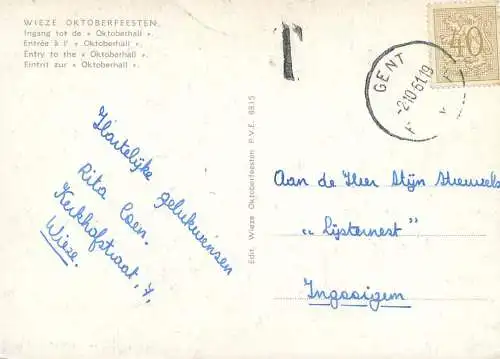 WIEZE OKTOBERFEESTEN.
Ingang tot de « Oktoberhall ».
Entrée à l' « Oktoberhall ».
Entry to the « Oktoberhall ».
Eintrit zur « Oktoberhall ».
T
GENT
-210 61.19
40
Hartelijke gelukwensen
Rita Coen.
Kerkhofstraat, 7,
Wieze.
Edit. Wieze Oktoberfeesten P.V.E. 8835
Aan de Heer Stijn Streuvels
"Lijsternest"
Ingooigem